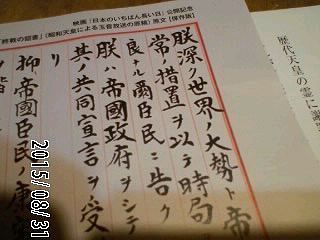 映画「日本のいちばん長い日」公開記念
「終戦の詔書」(昭和天皇による玉音放送の原稿)原文[保存版]
朕深ク世界ノ大勢ト帝
常ノ措置ヲ以テ時局
良ナル爾臣民ニ告ク
朕ハ帝國政府ヲシテ
其ノ共同宣言ヲ受
リ
抑〻帝國臣民ノ康
歴代天皇の霊に謝
2015/08/31